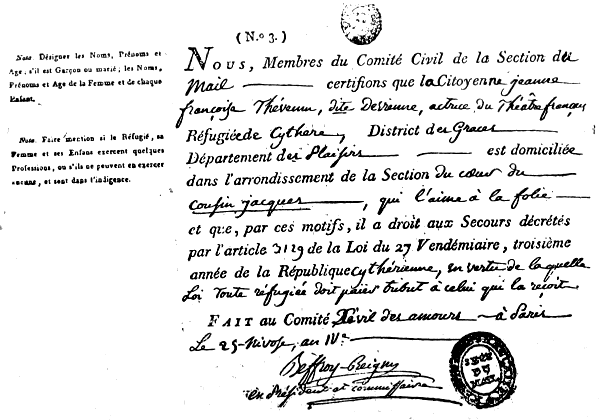 (N.º 3.)
Nota Désigner les Noms, Prénoms et
Age; s'il est Garçon ou marié; les Noms,
Prénoms et Age de la Femme et de chaque
Enfant.
Nota. Faire mention si le Réfugié, sa
Femme et ses Enfans exercent quelques
Professions, ou s'ils ne peuvent en exercer
aucune, et sont dans l'indigence.
Nous, Membres du Comité Civil de la Section du
Mail certifions que la Citoyenne jeanne
françoise Thévenin, dite devienne, actrice du théâtre français
Réfugiée de Cythère, District des Graces
Département des Plaisirs est domiciliée
dans l'arrondissement de la Section du cœur du
cousin jacques, qui l'aime à la folie
et que, par ces motifs, il a droit aux Secours décrétés
par l'article 3129 de la Loi du 27 Vendémiaire, troisième
année de la République Cythérienne, en vertu de laquelle
Loi toute réfugiée doit païer tribut à celui qui la reçoit.
Fait au Comité Civil des amours à Paris
Le 25 Nivose, an IVe
Beffroy-Reigny
en Président et commissaire
SECT
DU
MAIL